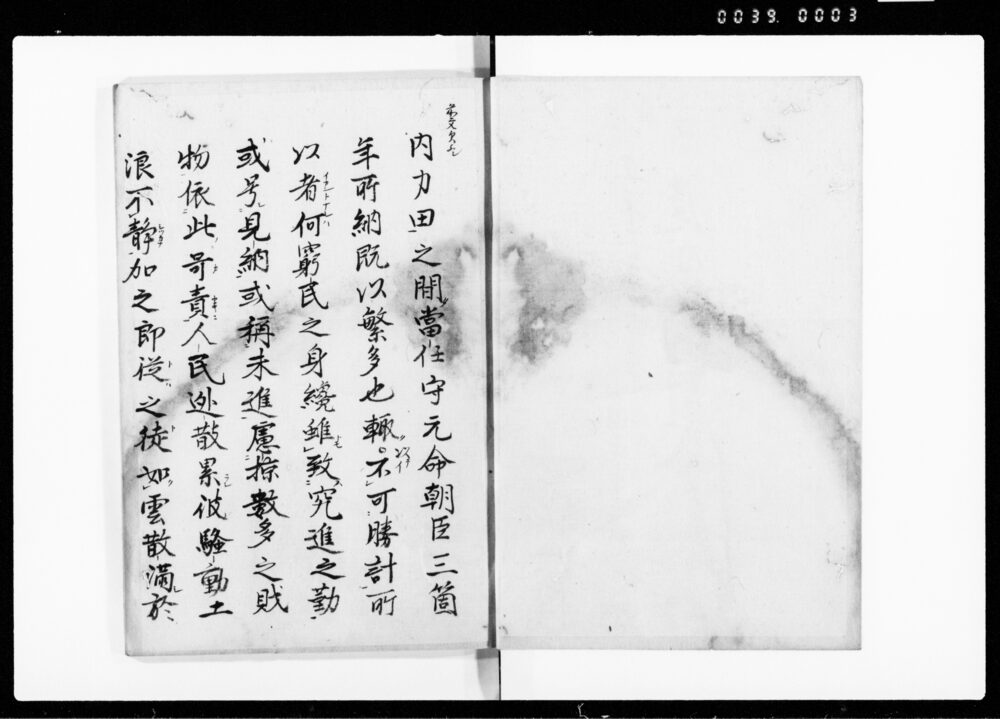 0039. 0003
内力田之間當任守元命朝臣三箇
年所納既以繁多也輙不可勝計所
以者何窮民之身纔雖致究進之勤
或号見納或稱未進慮掠數多之財
物依此苛責人民逃散累彼騒動土
浪不静加之郎従之徒如雲散滿於